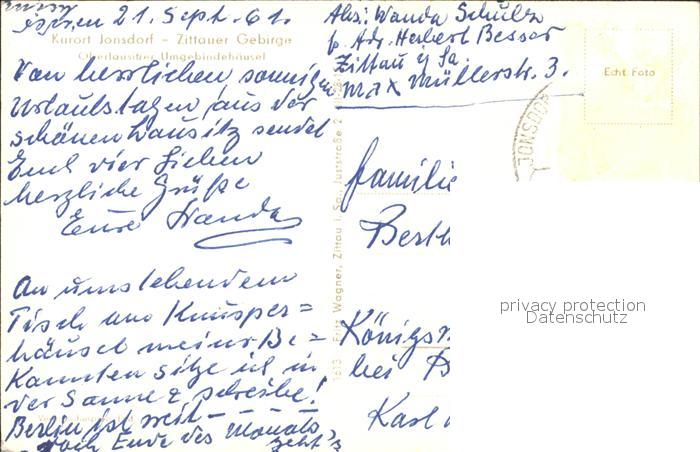 21. Sept. 61.
Kurort Jonsdorf – Zittauer Gebirge
Oberlausitzer Umgebindehäusel
Von herrlichen sonnigen
Urlaubstagen aus der
schönen Lausitz sendet
Euch vier Lieben
herzliche Grüße
Eure Wanda
An umstehendem
Tisch am Knusper=
häusel meiner Be=
kannten sitze ich in
der Sonne & schreibe!
Berlin ist weit –
noch Ende des Monats
geht's
Abs: Wanda Schulz
b. Adr. Herbert Besser
Zittau i/Sa.
Max Müllerstr. 3.
Echt Foto
JONSDOR
1613 Fritz Wagner, Zittau i. Sa., Juststraße 2
Familie
Berth
Königs
bei B
Karl
privacy protection
Datenschutz